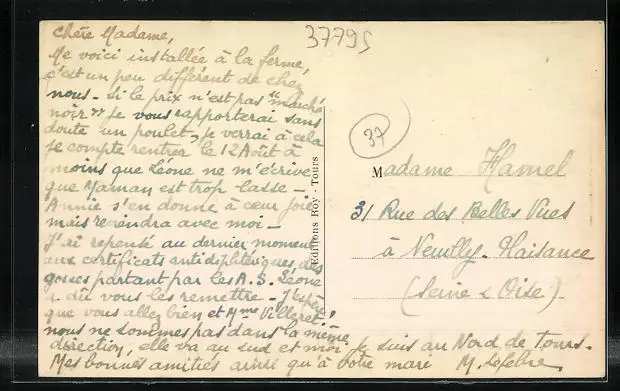 37795
Chère Madame,
Me voici installée à la ferme,
c'est un peu différent de chez
nous - si le prix n'est pas "marché
noir" je vous rapporterai sans
doute un poulet, je verrai à cela
je compte rentrer le 12 Août à
moins que Léone ne m'écrive
que Maman est trop lasse -
Annie s'en donne à cœur joie
mais reviendra avec moi -
J'ai repensé au dernier moment
aux certificats antidiphtériques, des
gosses partant par les A.S. Léone
a dû vous les remettre - J'espère
que vous allez bien et Mme Villeret,
nous ne sommes pas dans la même
direction, elle va au sud et moi je suis au Nord de Tours.
Mes bonnes amitiés ainsi qu'à votre mari M. Lefebre
Editions Roy - Tours
37
Madame Hamel
31 Rue des Belles Vues
à Neuilly-Plaisance
(Seine & Oise)